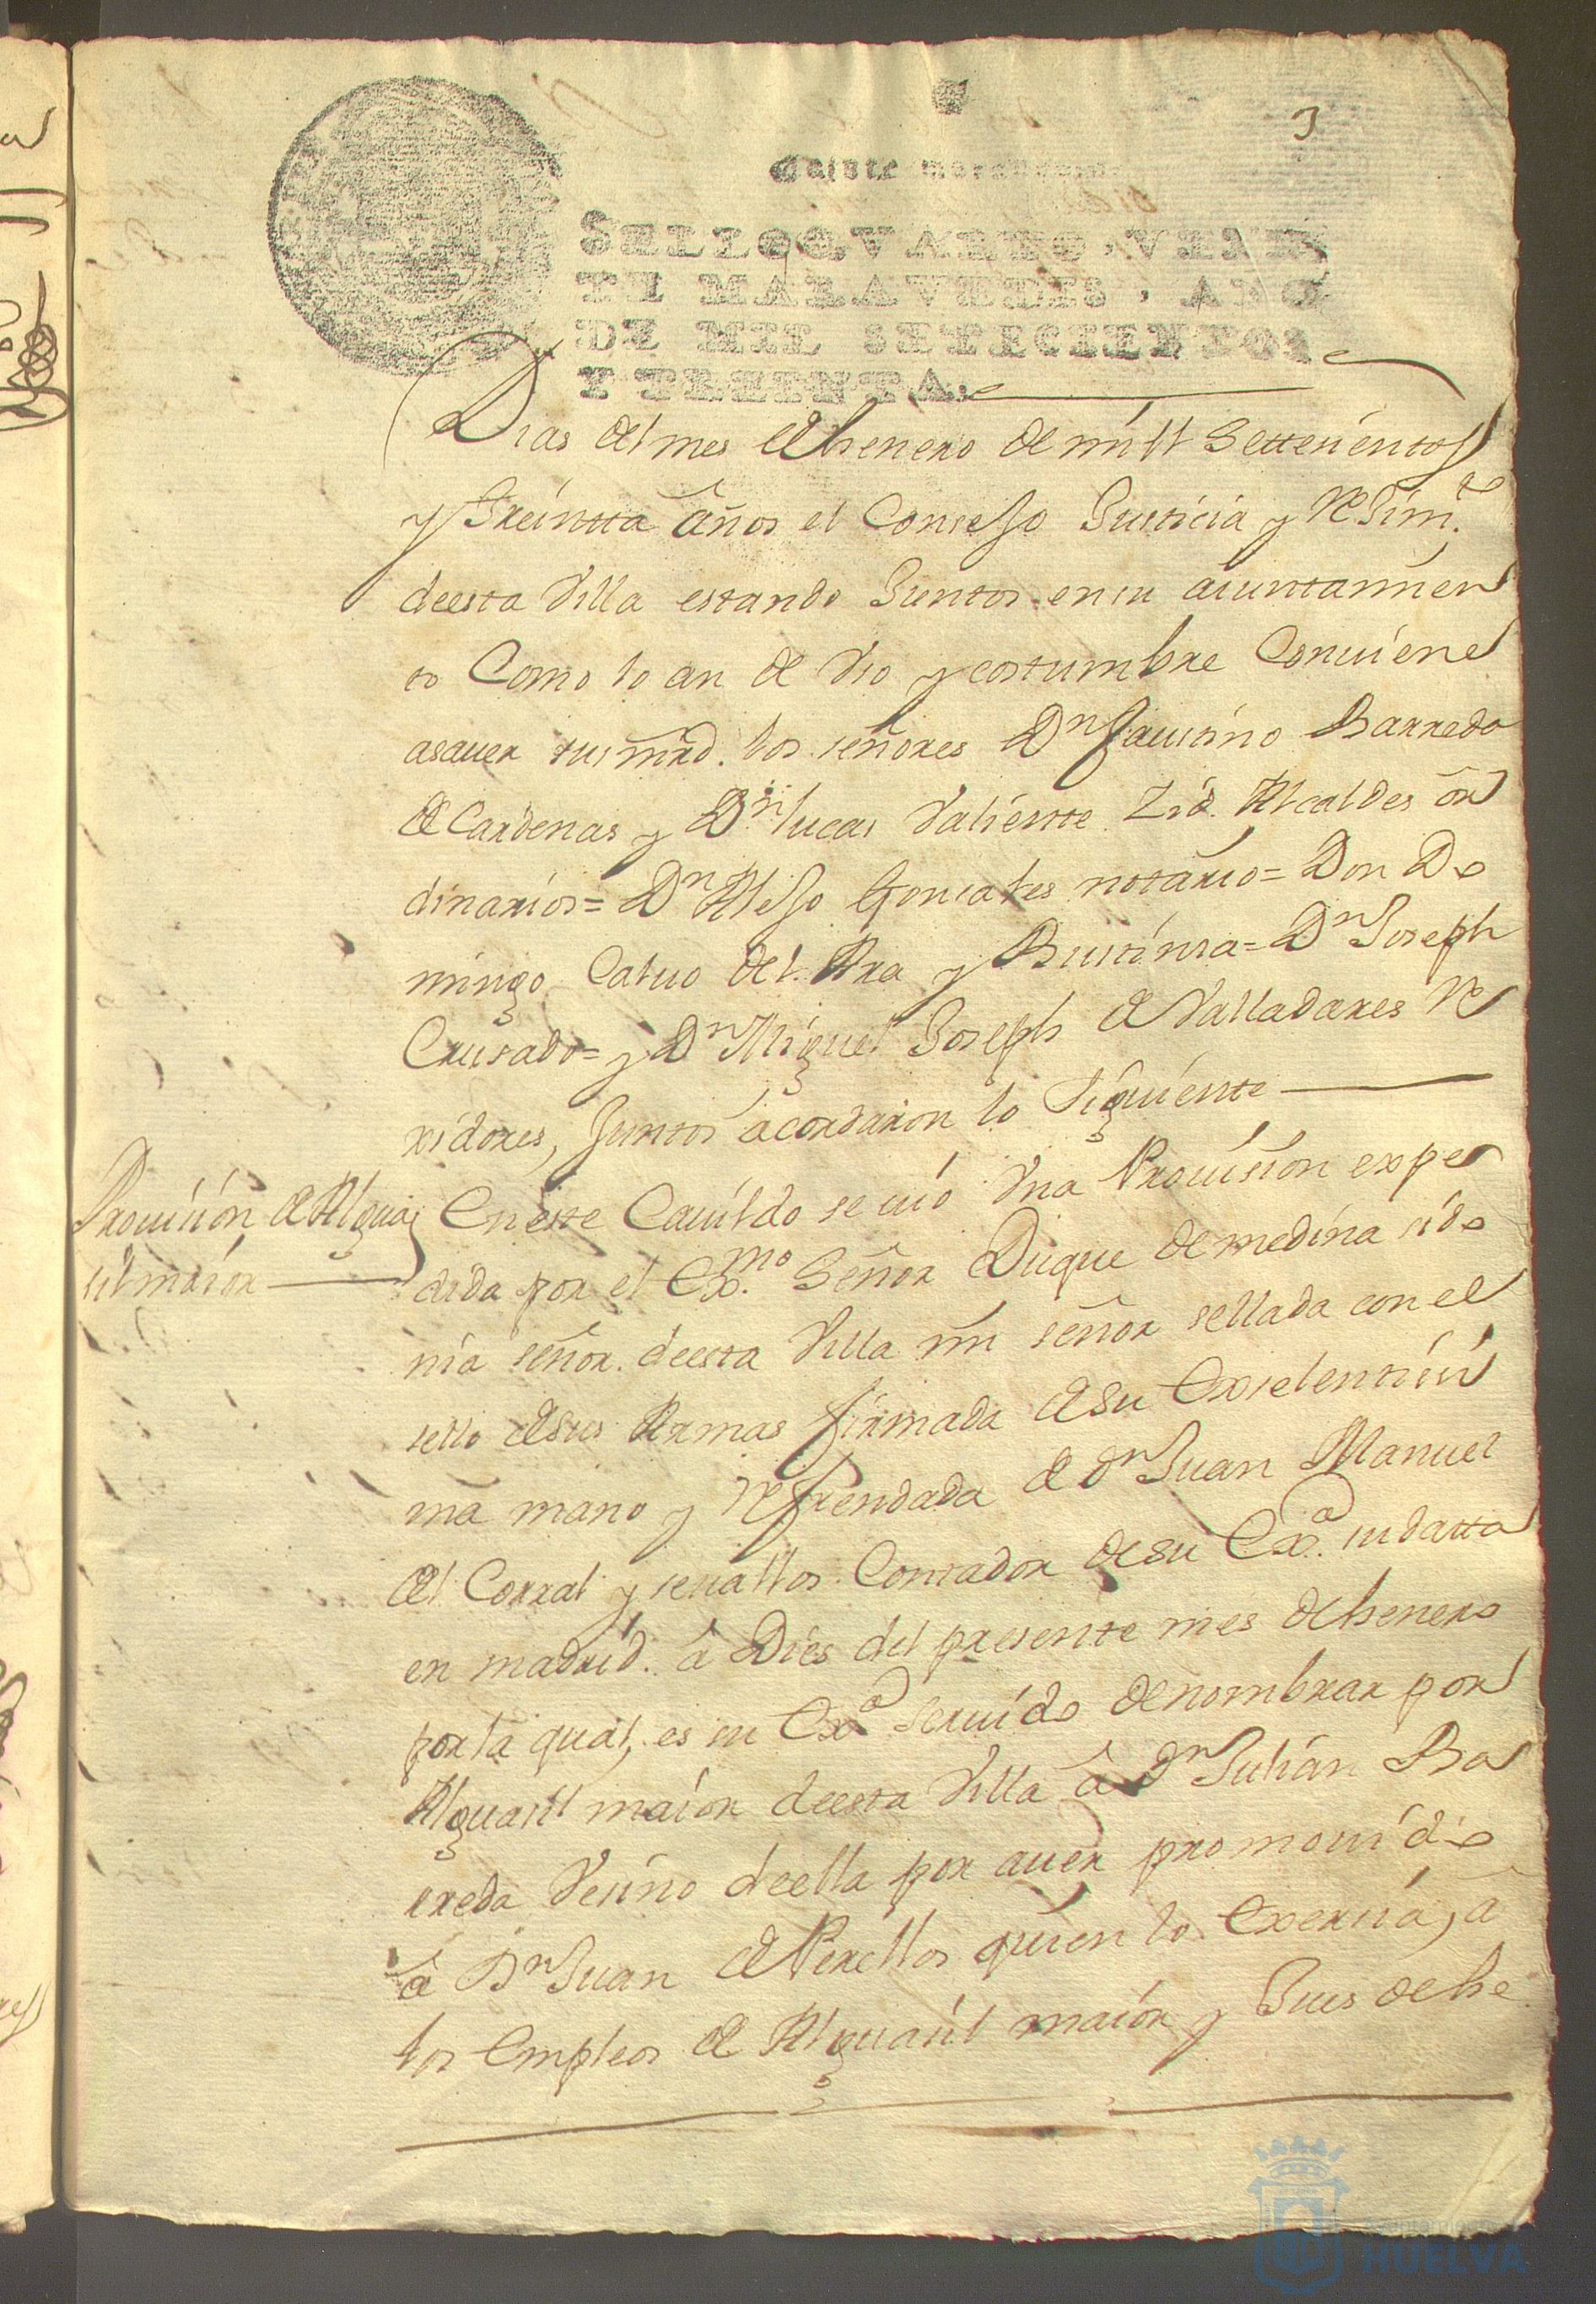 3
Veinte maravedis.
SELLO QVARTO, VEIN-
TE MARAVEDIS, AÑO
DE MIL SETECIENTOS
Y TREINTA.
Dias del mes de henero de mill Settecientos
y Treintta años el Consejo Justicia y Rejim.to
deesta Villa estando Juntos en su aiuntamien
to Como lo an de Vso y costumbre Conuiene
asauer sus mrd. los señores Dn faustino Barreda
de Cardenas y Dn lucas Valiente Zid. Alcaldes or
dinarios= Dn Alejo Gonsales notario= Don Do
mingo Caluo del. Ara y Bustinsa= Dn Joseph
Crusado= y Dn Miguel Joseph de Valladares Re
xidores, Juntos acordaron lo siguiente
Prouision de Algua
sil maior
En este Cauildo se uio Vna Prouision expe
dida por el Ex.mo Señor Duque de medina sido
nia señor deesta Villa mi señor sellada con el
sello de sus Armas firmada de su Exselentisi
ma mano y Refrendada de dn Juan Manuel
del Corral y seuallos Contador de su Ex.a su datta
en madrid. â Dies del presente mes de henero
por la qual, es su Ex.a seruido de nombrar por
Alguasil maior deesta Villa â dn Julian Ba
rreda Vesino deella por auer promouido
â Dn Juan de Perellos quien lo Exersia, â
los Empleos de Alguasil maior y Jues de he
HUELVA